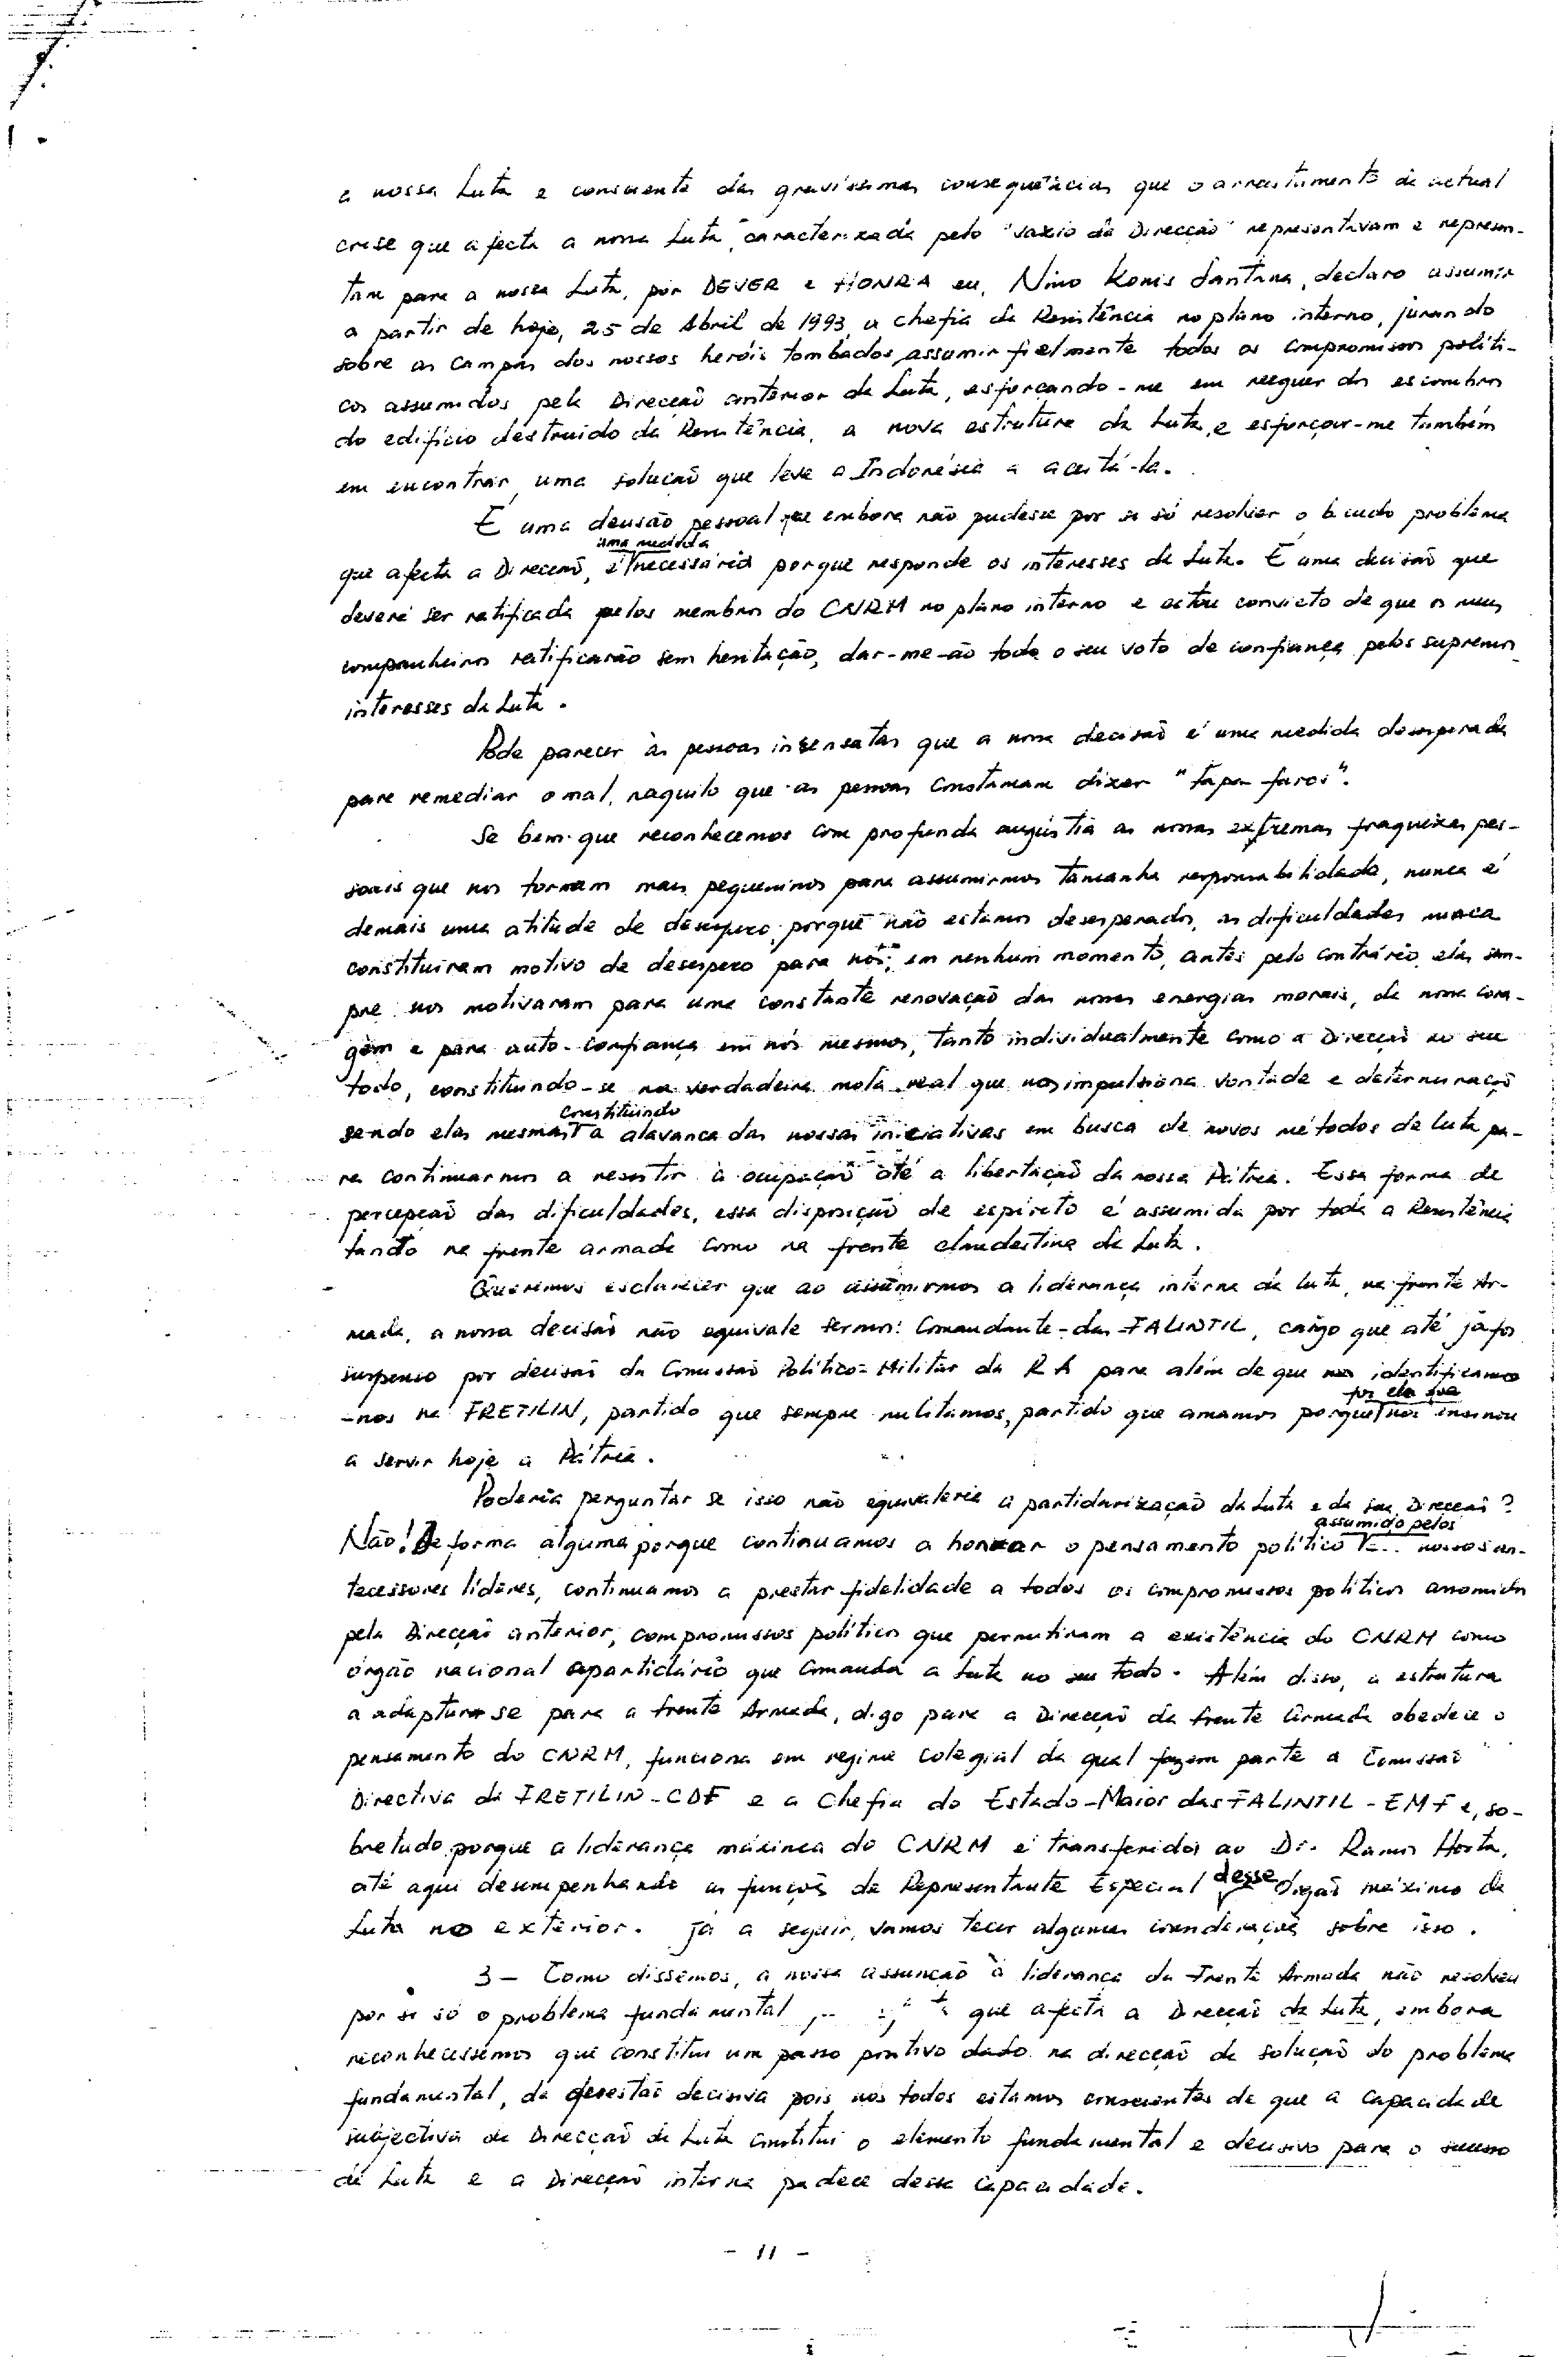 a nossa Luta e consciente das gravíssimas consequências que o arrastamento da actual
crise que afecta a nossa Luta, caracterizada pelo "vazio da Direcção" representavam e represen-
tam para a nossa Luta, por DEVER e HONRA eu, Nino Konis Santana, declaro assumir
a partir de hoje, 25 de Abril de 1993, a chefia da Resistência no plano interno, jurando
sobre as campas dos nossos heróis tombados, assumir fielmente todos os compromissos políti-
cos assumidos pela Direcção anterior da Luta, esforçando-me em reeguer dos escombros
do edifício destruido da Resistência, a nova estrutura da Luta, e esforçar-me também
em encontrar uma solução que leve a Indonésia a aceitá-la.
É uma decisão pessoal que embora não pudesse por si só resolver o bicudo problema
que afecta a Direcção, é uma medida necessária porque responde os interesses da Luta. É uma decisão que
deverá ser ratificada pelos membros do CNRM no plano interno e estou convicto de que os meus
companheiros ratificarão sem hesitação, dar-me-ão todo o seu voto de confiança pelos supremos
interesses da Luta.
Pode parecer às pessoas insensatas que a nossa decisão é uma medida desesperada
para remediar o mal, naquilo que as pessoas costumam dizer "tapa furos".
Se bem que reconhecemos com profunda angústia as nossas extremas fraquezas pes-
soais que nos tornam mais pequeninos para assumirmos tamanha responsabilidade, nunca é
demais uma atitude de desespero, porque não estamos desesperados, as dificuldades nunca
constituiram motivo de desespero para nós, em nenhum momento, antes pelo contrário, elas sem-
pre nos motivaram para uma constante renovação das nossas energias morais, da nossa cora-
gem e para auto-confiança em nós mesmos, tanto individualmente como a Direcção no seu
todo, constituindo-se na verdadeira mola real que nos impulsiona vontade e determinação
sendo elas mesmas constituindo a alavanca das nossas iniciativas em busca de novos métodos de luta pa-
ra continuarmos a resistir à ocupação até a libertação da nossa Pátria. Essa forma de
percepção das dificuldades, essa disposição de espírito é assumida por toda a Resistência
tanto na frente armada como na frente clandestina da Luta.
Queremos esclarecer que ao assumirmos a liderança interna da luta, na frente Ar-
mada, a nossa decisão não equivale sermos: Comandante-das-FALINTIL, cargo que até já foi
suspenso por decisão da Comissão Político-Militar da RA para além de que nos identificamos
-nos na FRETILIN, partido que sempre militamos, partido que amamos porque foi ela que nos ensinou
a servir hoje a Pátria.
Poderia perguntar se isso não equivaleria a partidarização da Luta e da sua Direcção?
Não! De forma alguma porque continuamos a honrar o pensamento político assumido pelos nossos an-
tecessores líderes, continuamos a prestar fidelidade a todos os compromissos políticos assumidos
pela Direcção anterior, compromissos políticos que permitiram a existência do CNRM como
órgão nacional apartidário que comanda a Luta no seu todo. Além disso, a estrutura
a adaptar-se para a frente Armada, digo para a Direcção da frente Armada obedece o
pensamento do CNRM, funciona em regime colegial da qual fazem parte a Comissão
Directiva da FRETILIN-CDF e a Chefia do Estado-Maior das FALINTIL-EMF e, so-
bretudo porque a liderança máxima do CNRM é transferida ao Dr. Ramos Horta,
até aqui desempenhando as funções de Representante Especial desse Órgão máximo da
Luta no exterior. Já a seguir, vamos tecer algumas considerações sobre isso.
3 - Como dissemos, a nossa assunção à liderança da Frente Armada não resolveu
por si só o problema fundamental que afecta a Direcção da Luta, embora
reconhecessemos que constitui um passo positivo dado na direcção da solução do problema
fundamental, da questão decisiva pois nós todos estamos conscientes de que a capacidade
subjectiva da Direcção da Luta constitui o elemento fundamental e decisivo para o sucesso
da Luta e a Direcção interna padece dessa capacidade.
- 11 -